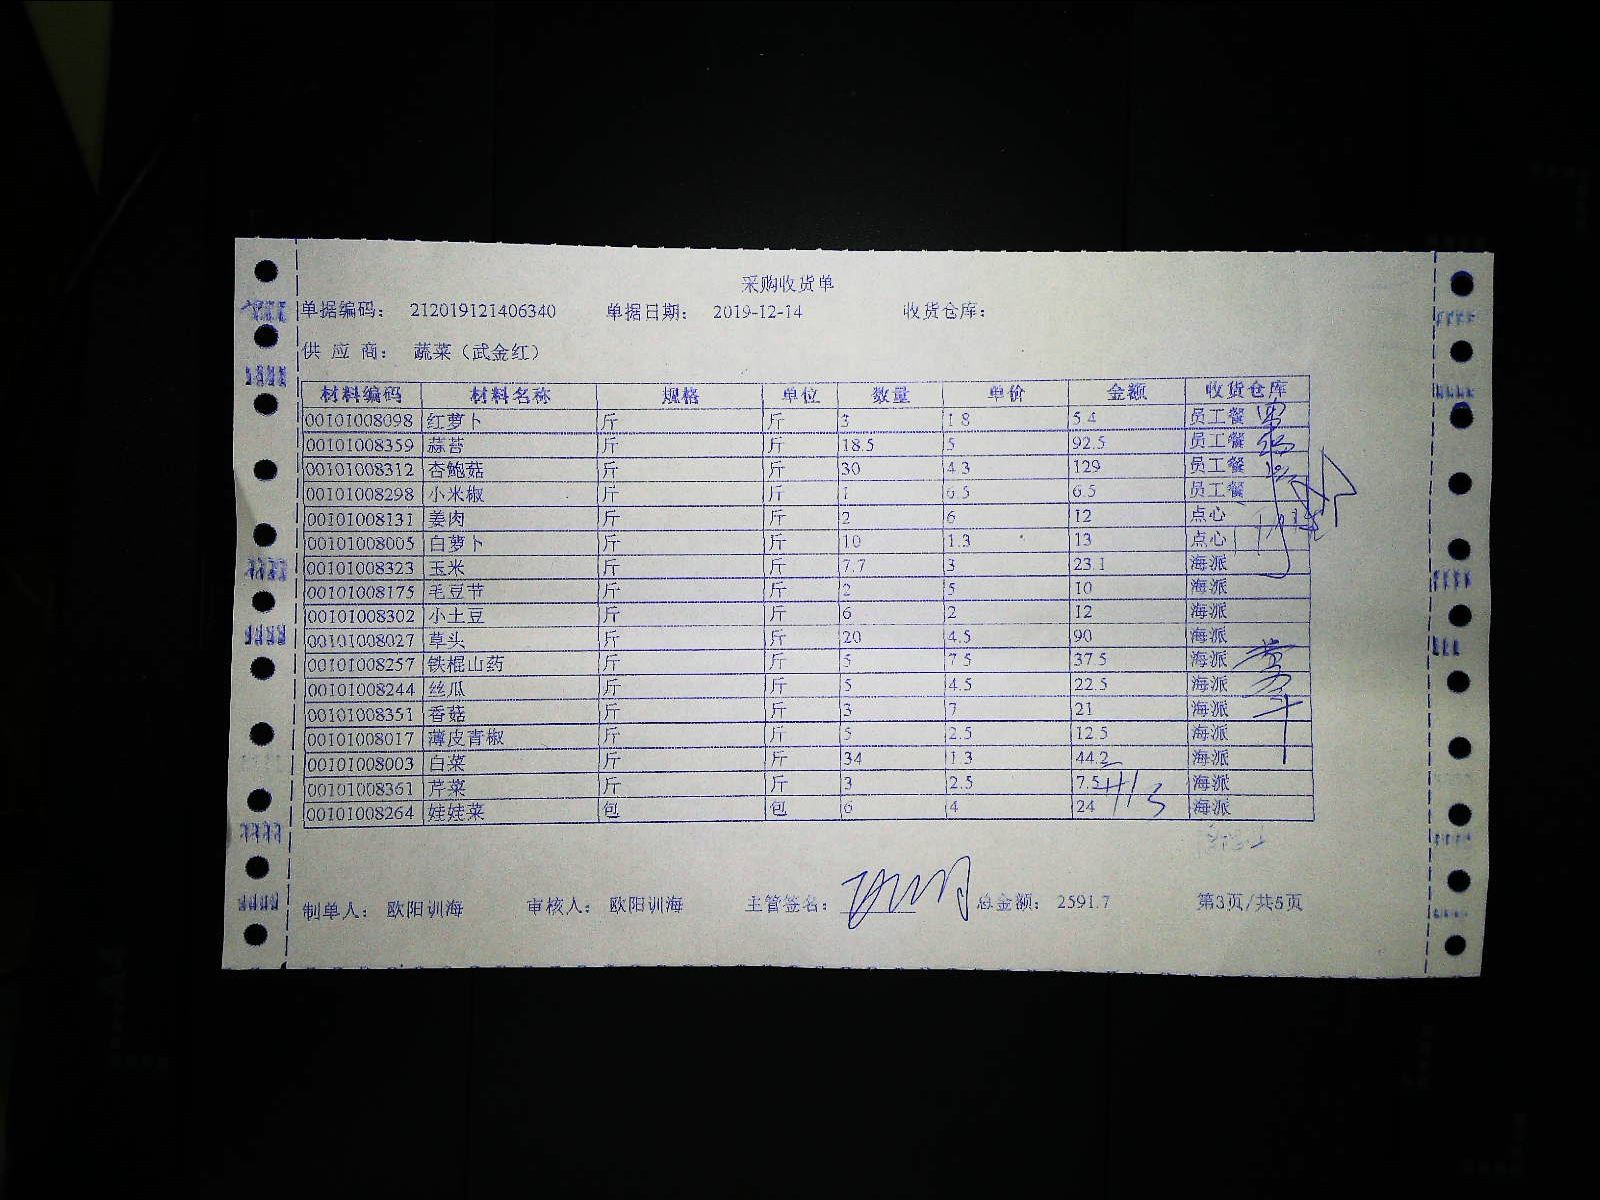 采购收货单
单据编码： 212019121406340 单据日期： 2019-12-14 收货仓库：
供 应 商： 蔬菜（武金红）
材料编码 材料名称 规格 单位 数量 单价 金额 收货仓库
00101008098 红萝卜 斤 斤 3 1.8 5.4 员工餐
00101008359 蒜苔 斤 斤 18.5 5 92.5 员工餐
00101008312 杏鲍菇 斤 斤 30 4.3 129 员工餐
00101008298 小米椒 斤 斤 1 6.5 6.5 员工餐
00101008131 姜肉 斤 斤 2 6 12 点心
00101008005 白萝卜 斤 斤 10 1.3 13 点心
00101008323 玉米 斤 斤 7.7 3 23.1 海派
00101008175 毛豆节 斤 斤 2 5 10 海派
00101008302 小土豆 斤 斤 6 2 12 海派
00101008027 草头 斤 斤 20 4.5 90 海派
00101008257 铁棍山药 斤 斤 5 7.5 37.5 海派
00101008244 丝瓜 斤 斤 5 4.5 22.5 海派
00101008351 香菇 斤 斤 3 7 21 海派
00101008017 薄皮青椒 斤 斤 5 2.5 12.5 海派
00101008003 白菜 斤 斤 34 1.3 44.2 海派
00101008361 芹菜 斤 斤 3 2.5 7.5 海派
00101008264 娃娃菜 包 包 6 4 24 海派
制单人： 欧阳训海 审核人： 欧阳训海 主管签名： 总金额： 2591.7 第3页/共5页